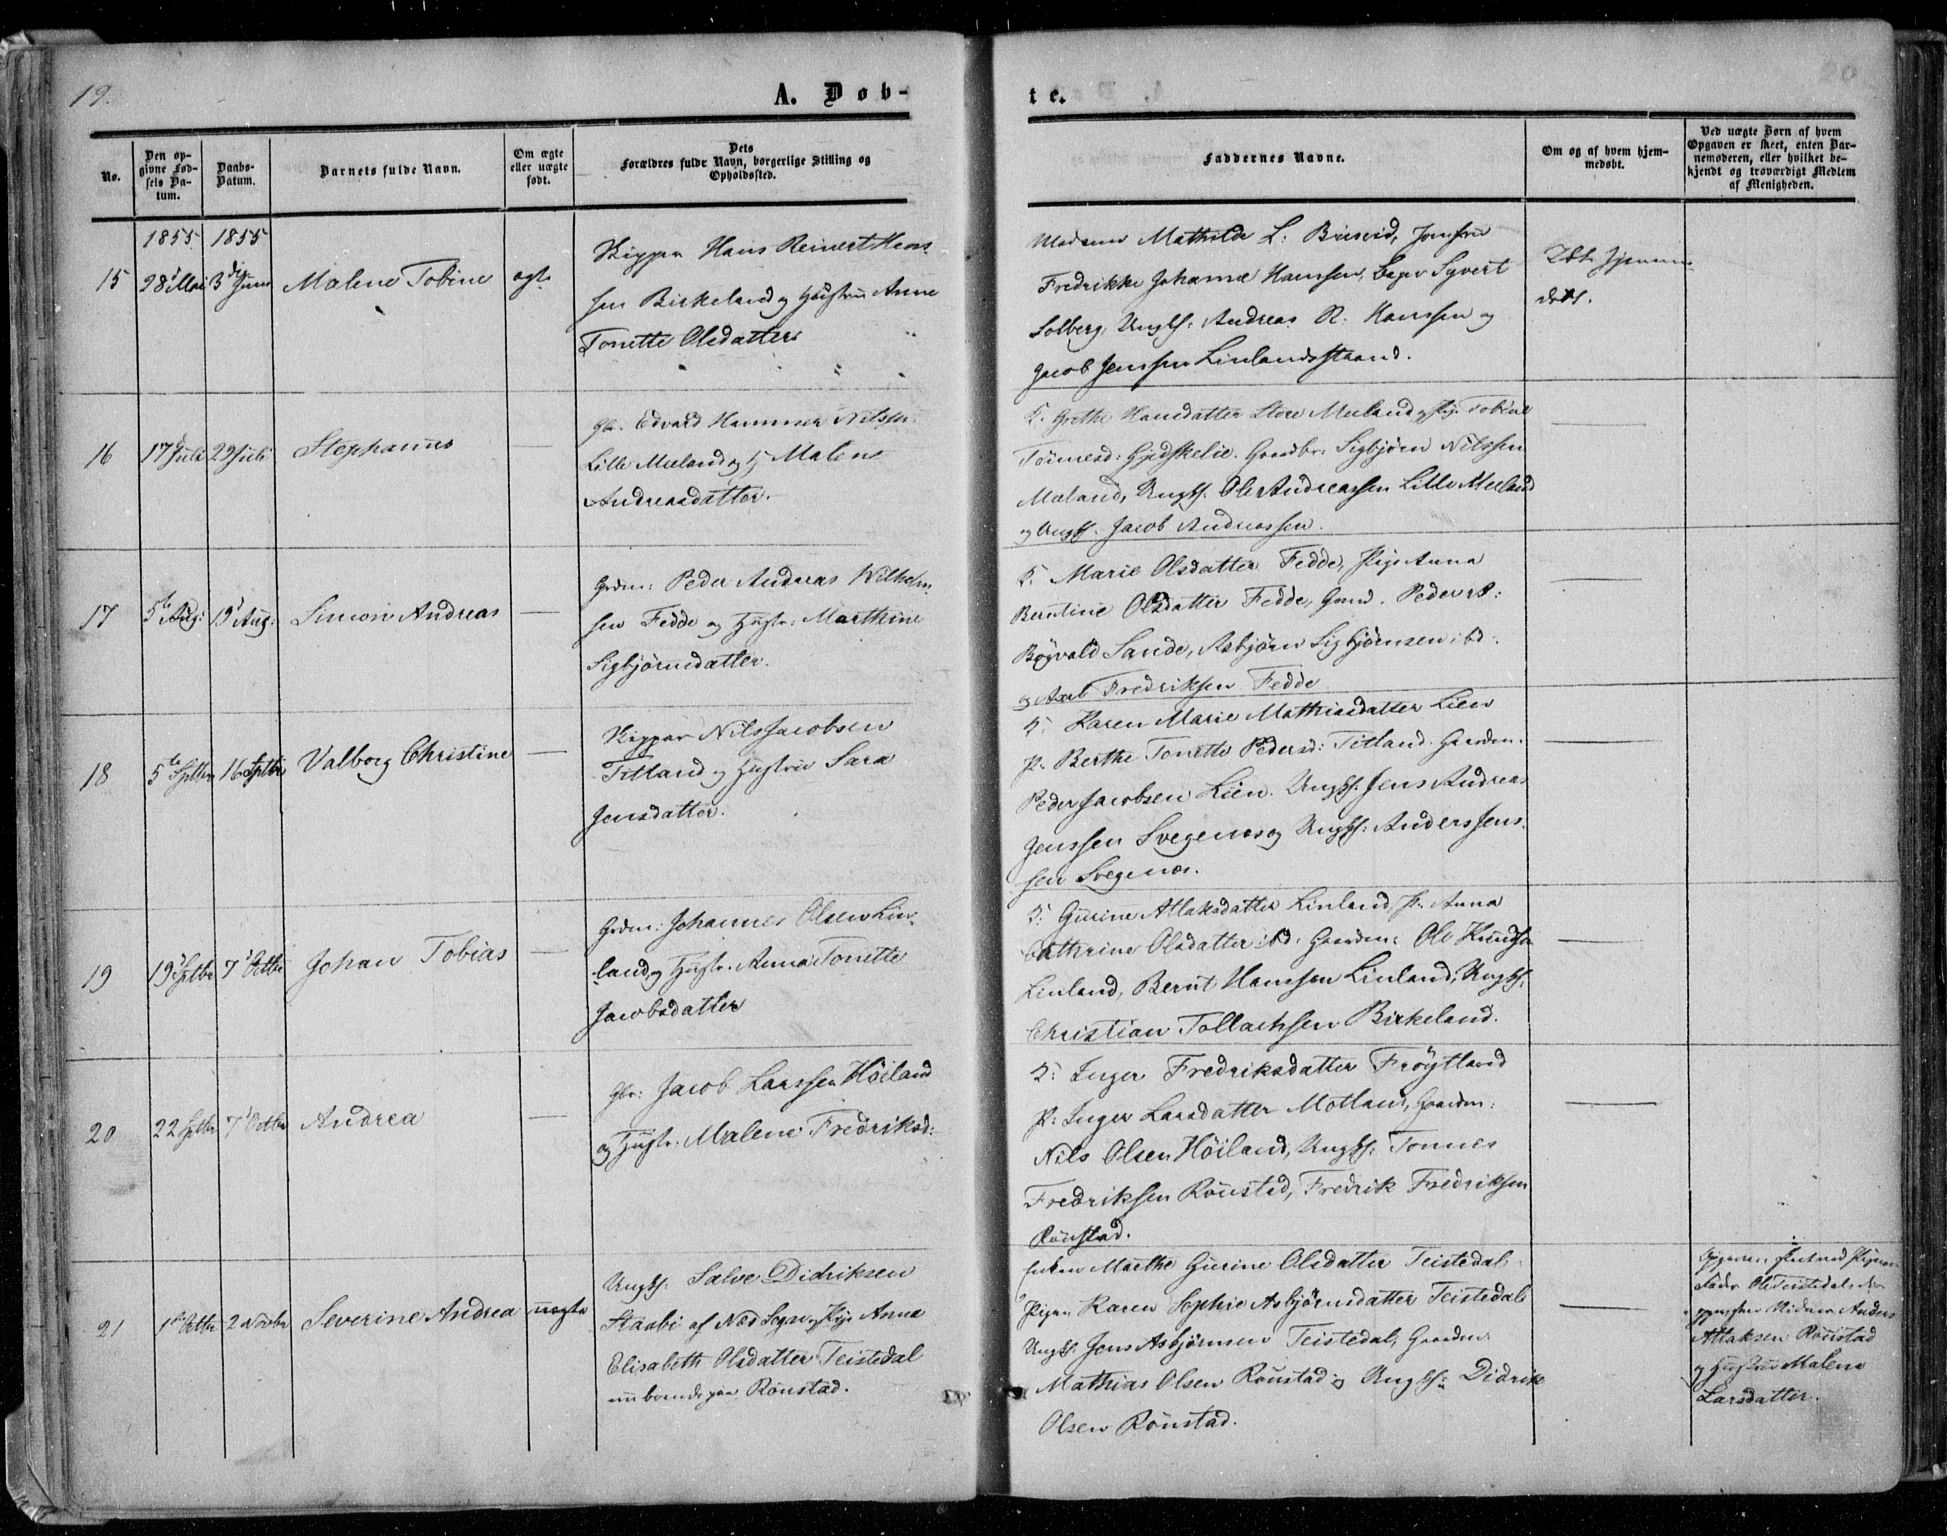 19.
A. Døb-
te.
No.
Den op-
givne Fød-
sels Da-
tum.
Daabs-
Datum.
Barnets fulde Navn.
Om ægte
eller uægte
født.
Dets
Forældres fulde Navn, borgerlige Stilling og
Opholdssted.
Faddernes Navne.
Om og af hvem hjem-
medøbt.
Ved uægte Børn af hvem
Opgaven er skeet, enten Bar-
nemoderen, eller hvilket be-
kjendt og troværdigt Medlem
af Menigheden.
1855 1855
15
28 Mai
3die Juni
Malene Tobine
ægte
Skipper Hans Reinert Hans-
sen Birkeland og Hustru Anne
Tonette Olsdatter
Madame Mathilde L: Jomfru
Fredrikke Johanna Hanssen, Syvert
Solberg, Ungk: Andreas R. Hanssen og
Jacob Jenssen Linlandsstrand.
døbt.
16
17 Juli
29 Juli
Stephanus
—
Gbr. Edvard Hammer Nilssen
Lille Meland og H. Malene
Andreasdatter.
K. Grethe Hansdatter Store Meland, Pige Tobine
Tønnesd: Gjedskelie. Gaardbr: Sigbjørn Nilssen
Meland, Ungk. Ole Andreassen Lille Meeland
og Ungk. Jacob Andreassen.
—
17
5te Aug:
19 Aug:
Simon Andreas
—
Grdm: Peder Andreas Wilhelm-
sen Fedde og Hustr: Marthine
Sigbjørnsdatter.
K. Marie Olsdatter Fedde, Pige Anna
Berntine Olsdatter Fedde, Gaard. Peder
Røgvald Sande, Asbjørn Sigbjørnsen ibd:
og Axel Fredriksen Fedde
—
18
5te Septbr
16 Septbr
Valborg Christine
—
Skipper Nils Jacobsen
Titland og Hustru Sara
Jensdatter.
K. Karen Marie Mathiasdatter Lien
P. Berthe Tonette Pedersd: Titland. Gaardm.
Peder Jacobsen Lien. Ungk. Jens Andreas
Jenssen Svegenæs og Ungk: Anders Jens-
sen Svegenæs.
—
19
19 Septbr
7 Octbr
Johan Tobias
—
Grdm: Johannes Olsen Lin-
land og Hustr. Anna Tonette
Jacobsdatter
K. Gurine Atlaksdatter Linland, P. Anna
Cathrine Olsdatter ibd. Gaardm: Ole Knudsen
Linland, Bernt Hanssen Linland, Ungk.
Christian Tollachsen Birkeland.
—
20
22 Septbr
7 Octbr
Andrea
—
Gbr: Jacob Larssen Høiland
og Hustr: Malene Fredriksd:
K. Inger Fredriksdatter Frøytland
P. Inger Larsdatter Motland, Gaardm:
Nils Olsen Høiland, Ungk. Tønnes
Fredriksen Rønstad, Fredrik Fredriksen
Rønstad.
—
21
1 Octbr
2 Novbr
Severine Andrea
uægte
Ungk. Salve Didriksen
Stasbi af Næs Sogn og Pige Anna
Elisabeth Olsdatter Teistedal
nu boende paa Rønstad.
Enken Marthe Gurine Olsdatter Teistedal
Pigen Karen Sophie Asbjørnsdatter Teistedal
Ungk. Jens Asbjørnsen Teistedal, Gaardm.
Mathias Olsen Rønstad og Ungk: Didrik
Olsen Rønstad.
—
Opgaven skeet ved Pigens
Fader Ole Teistedal
Anders
Atlaksen Rønstad
og Hustru Malene
Larsdatter.